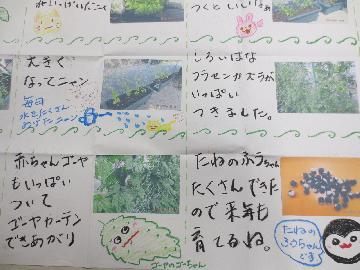 つくといいなあ
大きく
なってニャン
毎日
水をたくさん
あげたニャン
しろいはな
フウセンカズラが
いっぱい
つきました。
赤ちゃんゴーヤ
もいっぱい
ついて
ゴーヤカーテン
できあがり
ゴーヤのゴーちゃん
たねのふうちゃん
たくさんできた
ので来年も
育てるね。
たねの
ふうちゃん
です